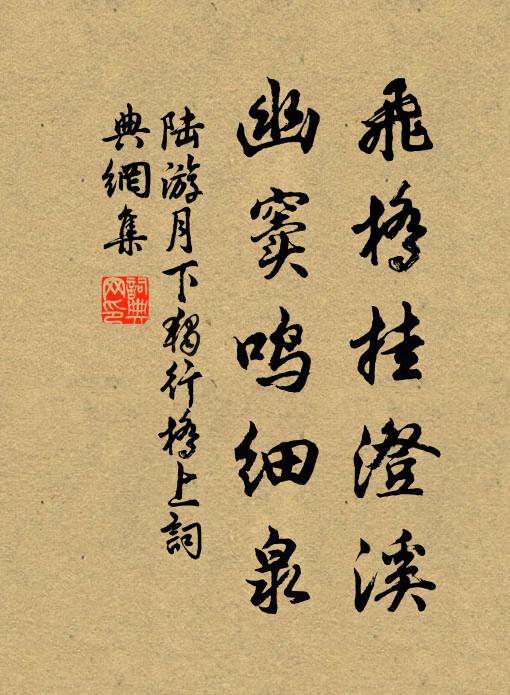 飛橋挂澄溪
幽竇鳴細泉
陆游月下独行橋上詞
典網集
詞典
网印